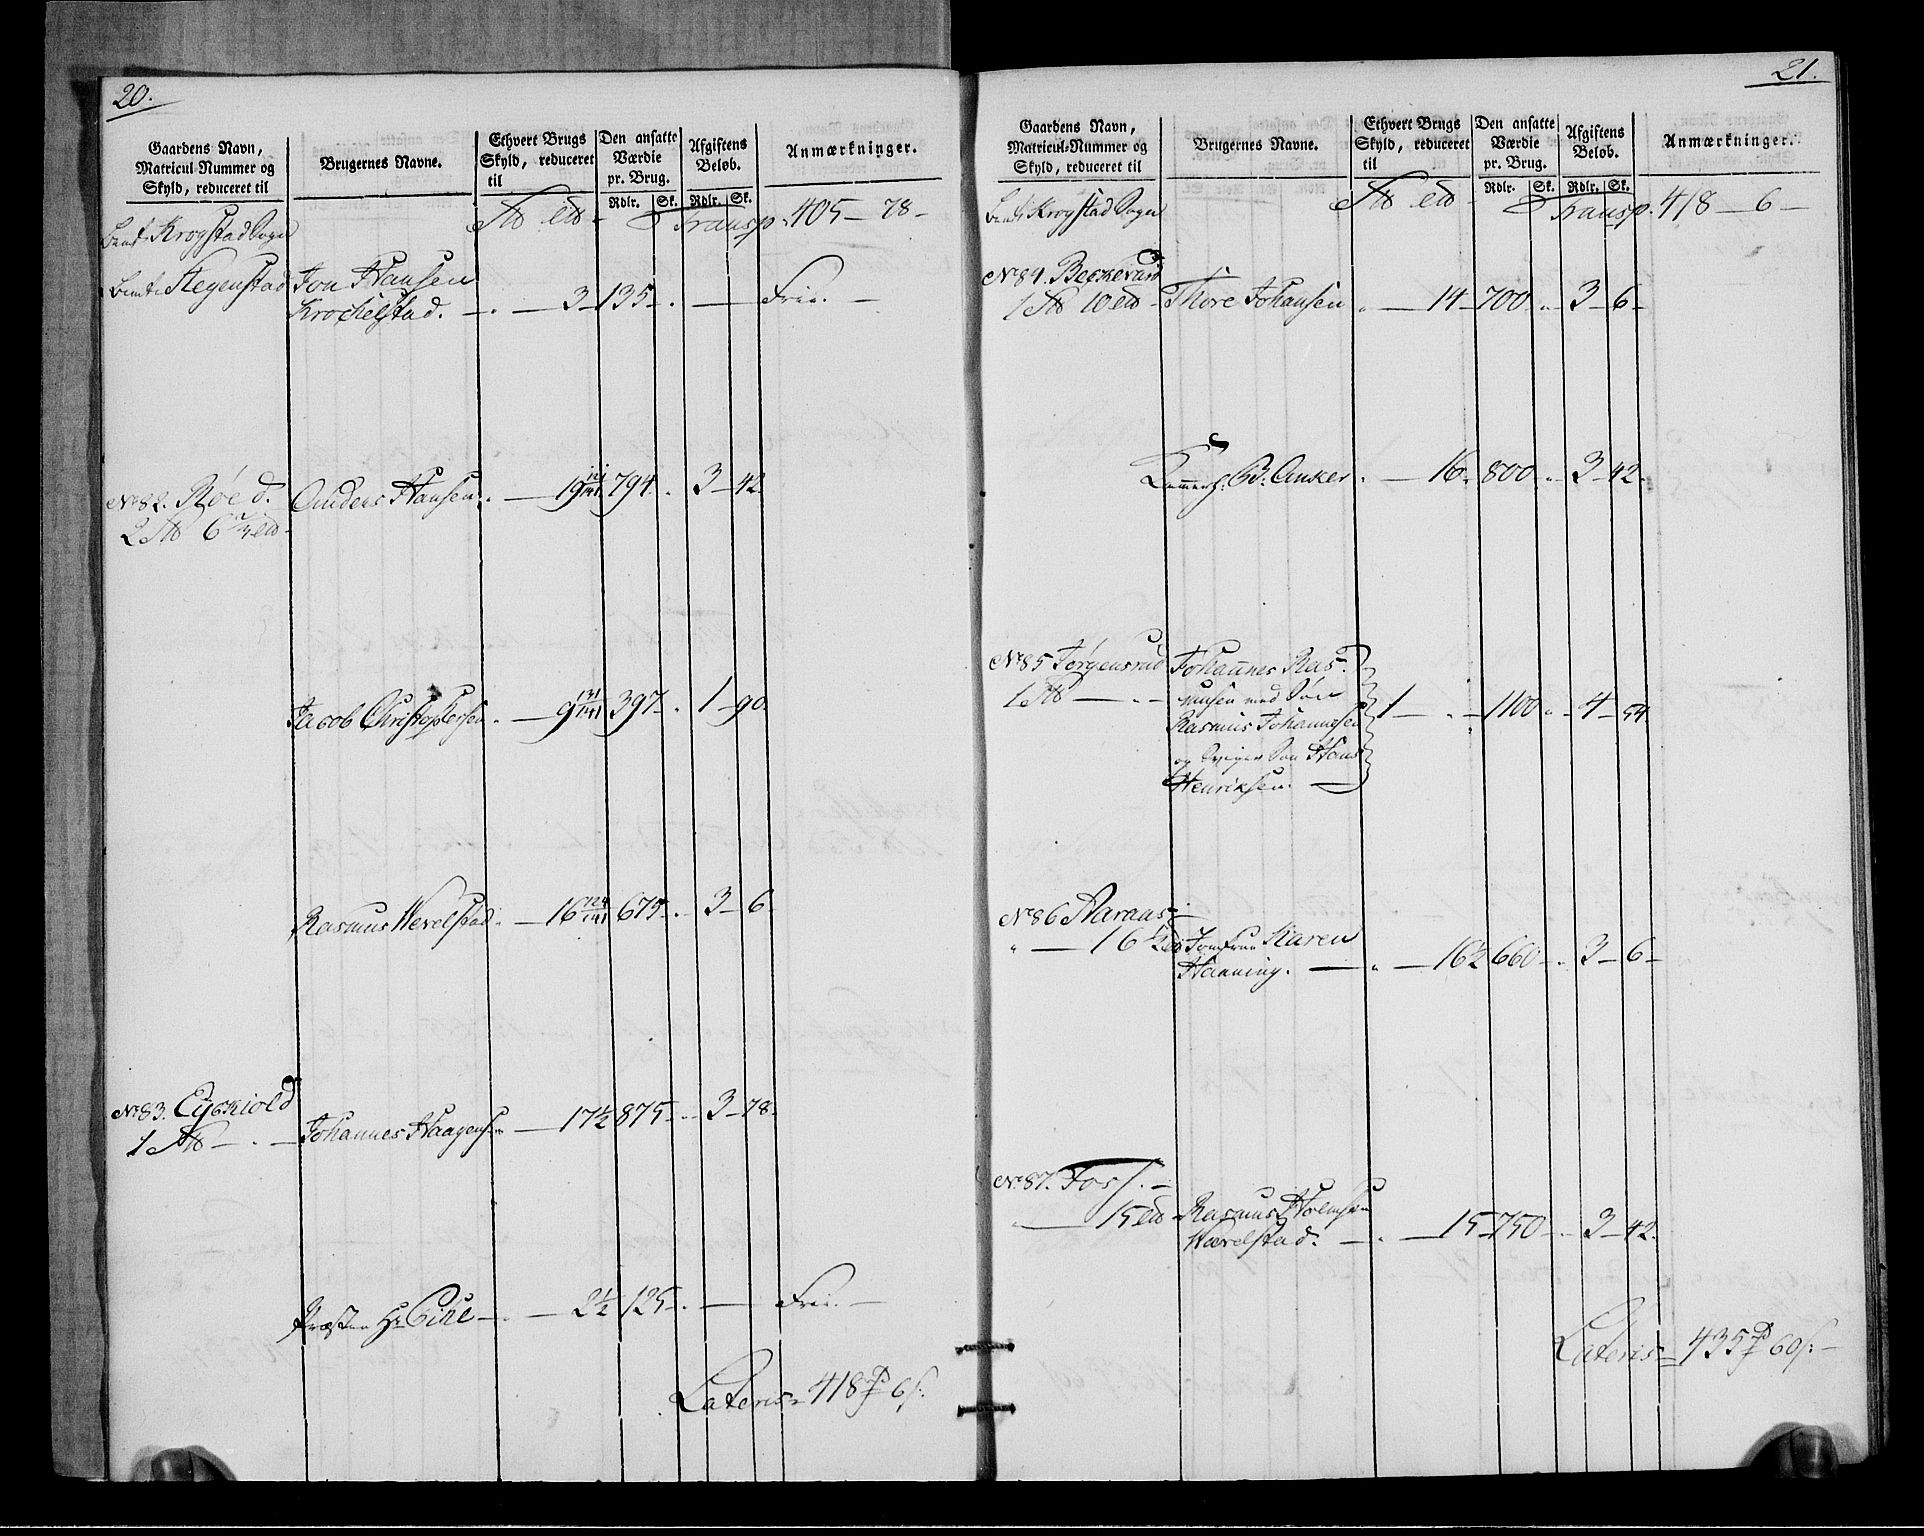 20.
Gaardens Navn,
Matricul-Nummer og
Skyld, reduceret til
Brugernes Navne.
Ethvert Brugs
Skyld, reduceret
til
Den ansatte
Værdie
pr. Brug.
Rdlr. Sk.
Afgiftens
Beløb.
Rdlr. Sk.
Anmærkninger.
Krogstad Sogn
Transp. 405 — 78 —
Hegenstad Jon Hansen
Krochelstad. — 3 — 135 — Frie. —
No 82. Røed. Anders Hansen. — 19 121/141 794 3 — 42
2 6
Jacob Christophersen — 9 131/141 397 1 — 90
Rasmus Wevelstad. — 16 124/141 675 3 — 6
No 83. Eyskiold
1 Johannes Haagens — 17 1/2 875 3 — 78
Præsten Hr — 2 1/2 125 — Frie. —
Lateris 418 6
21.
Gaardens Navn,
Matricul-Nummer og
Skyld, reduceret til
Brugernes Navne.
Ethvert Brugs
Skyld, reduceret
til
Den ansatte
Værdie
pr. Brug.
Rdlr. Sk.
Afgiftens
Beløb.
Rdlr. Sk.
Anmærkninger.
Krogstad Sogn
Transp. 418 — 6 —
No 84.
1 10 Thore Johansen — 14 — 700 3 — 6 —
Kammerh. B. Anker. — 16 800 3 — 42 —
No 85 Jørgensrud Johannes Ras-
1 musen med Søn
Rasmus Johannesen 1 — 1100 4 — 54
og Sviger Søn Hans
Henriksen. —
No 86 Aaraas
— 16 1/2 Jomfrue Karen
Hanning. — 16 1/2 660 3 — 6 —
No 87. Foss. —
— 15 Rasmus Holmsen
Wævelstad. — 15 — 750 3 — 42
Lateris 435 60